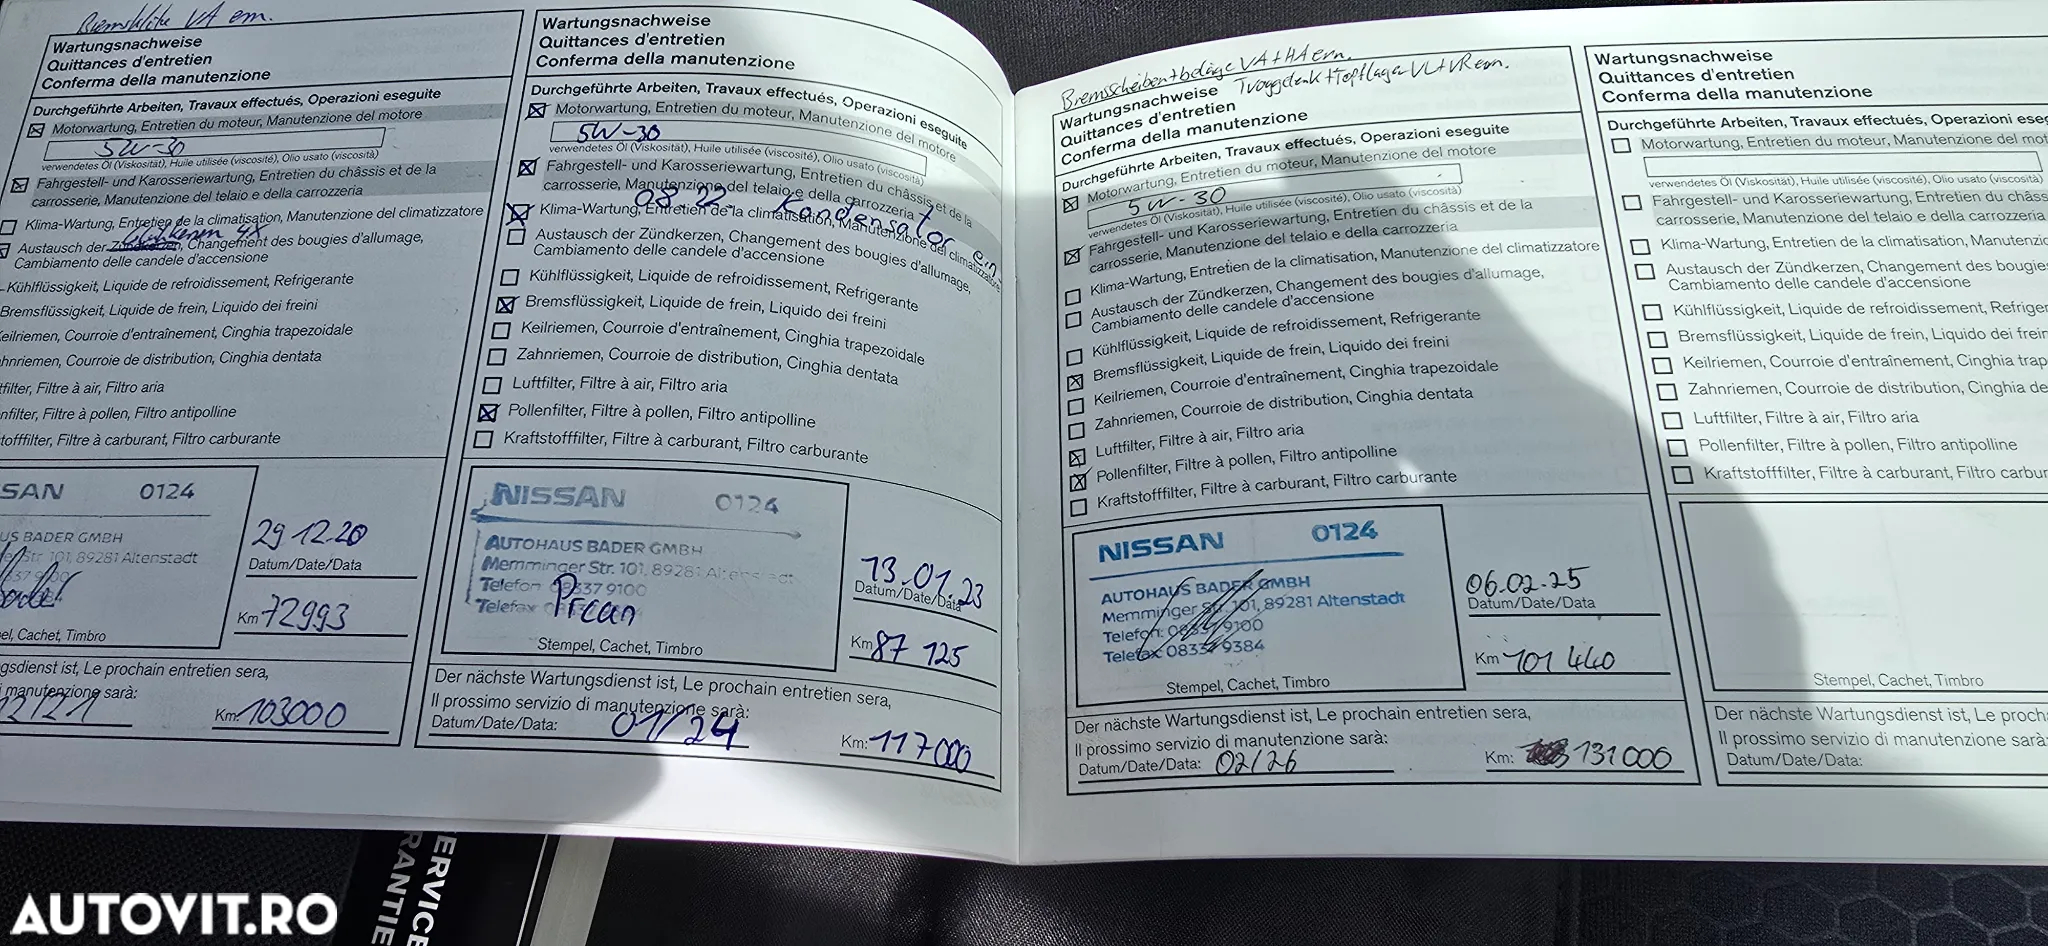 Bremsklötze VA ern.
Wartungsnachweise
Quittances d'entretien
Conferma della manutenzione
Durchgeführte Arbeiten, Travaux effectués, Operazioni eseguite
Motorwartung, Entretien du moteur, Manutenzione del motore
5W-30
verwendetes Öl (Viskosität), Huile utilisée (viscosité), Olio usato (viscosità)
Fahrgestell- und Karosseriewartung, Entretien du châssis et de la
carrosserie, Manutenzione del telaio e della carrozzeria
Klima-Wartung, Entretien de la climatisation, Manutenzione del climatizzatore
4x
Austausch der Zündkerzen, Changement des bougies d'allumage,
Cambiamento delle candele d'accensione
Kühlflüssigkeit, Liquide de refroidissement, Refrigerante
Bremsflüssigkeit, Liquide de frein, Liquido dei freini
eilriemen, Courroie d'entraînement, Cinghia trapezoidale
hnriemen, Courroie de distribution, Cinghia dentata
tfilter, Filtre à air, Filtro aria
nfilter, Filtre à pollen, Filtro antipolline
stofffilter, Filtre à carburant, Filtro carburante
SAN 0124
US BADER GMBH
er Str. 101, 89281 Altenstadt
337 9100
29.12.20
Datum/Date/Data
Km 72993
el, Cachet, Timbro
gsdienst ist, Le prochain entretien sera,
manutenzione sarà:
12/21
Km: 103000
Wartungsnachweise
Quittances d'entretien
Conferma della manutenzione
Durchgeführte Arbeiten, Travaux effectués, Operazioni eseguite
Motorwartung, Entretien du moteur, Manutenzione del motore
5W-30
verwendetes Öl (Viskosität), Huile utilisée (viscosité), Olio usato (viscosità)
Fahrgestell- und Karosseriewartung, Entretien du châssis et de la
carrosserie, Manutenzione del telaio e della carrozzeria
08.22. Kondensator ern
Klima-Wartung, Entretien de la climatisation, Manutenzione del climatizzatore
Austausch der Zündkerzen, Changement des bougies d'allumage,
Cambiamento delle candele d'accensione
Kühlflüssigkeit, Liquide de refroidissement, Refrigerante
Bremsflüssigkeit, Liquide de frein, Liquido dei freini
Keilriemen, Courroie d'entraînement, Cinghia trapezoidale
Zahnriemen, Courroie de distribution, Cinghia dentata
Luftfilter, Filtre à air, Filtro aria
Pollenfilter, Filtre à pollen, Filtro antipolline
Kraftstofffilter, Filtre à carburant, Filtro carburante
NISSAN 0124
AUTOHAUS BADER GMBH
Memminger Str. 101, 89281 Altenstadt
Telefon 08337 9100
Telefax
Stempel, Cachet, Timbro
13.01.23
Datum/Date/Data
Km 87 125
Der nächste Wartungsdienst ist, Le prochain entretien sera,
Il prossimo servizio di manutenzione sarà:
Datum/Date/Data: 01/24
Km: 117000
Bremsscheiben+beläge VA+HA ern.
Traggelenk+Kopflager VL+VR ern.
Wartungsnachweise
Quittances d'entretien
Conferma della manutenzione
Durchgeführte Arbeiten, Travaux effectués, Operazioni eseguite
Motorwartung, Entretien du moteur, Manutenzione del motore
5W-30
verwendetes Öl (Viskosität), Huile utilisée (viscosité), Olio usato (viscosità)
Fahrgestell- und Karosseriewartung, Entretien du châssis et de la
carrosserie, Manutenzione del telaio e della carrozzeria
Klima-Wartung, Entretien de la climatisation, Manutenzione del climatizzatore
Austausch der Zündkerzen, Changement des bougies d'allumage,
Cambiamento delle candele d'accensione
Kühlflüssigkeit, Liquide de refroidissement, Refrigerante
Bremsflüssigkeit, Liquide de frein, Liquido dei freini
Keilriemen, Courroie d'entraînement, Cinghia trapezoidale
Zahnriemen, Courroie de distribution, Cinghia dentata
Luftfilter, Filtre à air, Filtro aria
Pollenfilter, Filtre à pollen, Filtro antipolline
Kraftstofffilter, Filtre à carburant, Filtro carburante
NISSAN 0124
AUTOHAUS BADER GMBH
Memminger Str. 101, 89281 Altenstadt
Telefon: 08337 9100
Telefax 08337 9384
Stempel, Cachet, Timbro
06.02.25
Datum/Date/Data
Km 101 440
Der nächste Wartungsdienst ist, Le prochain entretien sera,
Il prossimo servizio di manutenzione sarà:
Datum/Date/Data: 02/26
Km: 131 000
Wartungsnachweise
Quittances d'entretien
Conferma della manutenzione
Durchgeführte Arbeiten, Travaux effectués, Operazioni eseg
Motorwartung, Entretien du moteur, Manutenzione del mot
verwendetes Öl (Viskosität), Huile utilisée (viscosité), Olio usato (viscosità)
Fahrgestell- und Karosseriewartung, Entretien du châss
carrosserie, Manutenzione del telaio e della carrozzeria
Klima-Wartung, Entretien de la climatisation, Manutenzio
Austausch der Zündkerzen, Changement des bougies
Cambiamento delle candele d'accensione
Kühlflüssigkeit, Liquide de refroidissement, Refriger
Bremsflüssigkeit, Liquide de frein, Liquido dei frein
Keilriemen, Courroie d'entraînement, Cinghia trap
Zahnriemen, Courroie de distribution, Cinghia de
Luftfilter, Filtre à air, Filtro aria
Pollenfilter, Filtre à pollen, Filtro antipolline
Kraftstofffilter, Filtre à carburant, Filtro carbur
Stempel, Cachet, Timbro
Der nächste Wartungsdienst ist, Le proch
Il prossimo servizio di manutenzione sarà:
Datum/Date/Data:
ERVICE
RANTIE
AUTOVIT.RO